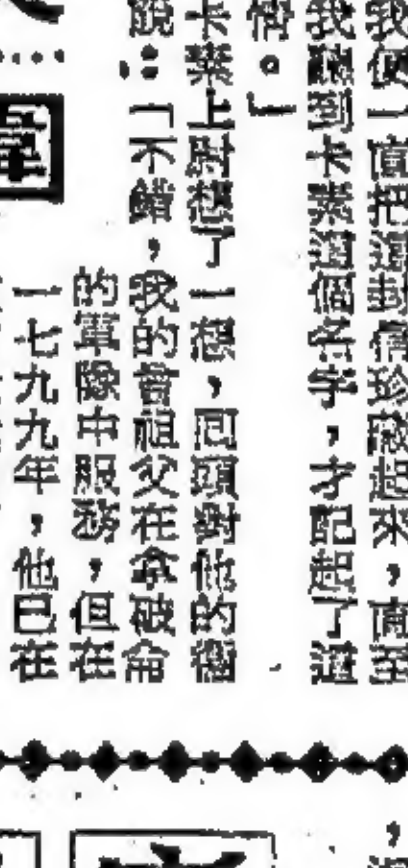 我便一直把這封信珍藏起來，直至
我聽到卡素這個名字，才記起了這
情。」
卡素上尉想了一想，回頭對他的
說：「不錯，我的曾祖父在拿破崙
的軍隊中服務，但在
一七九九年，他已在